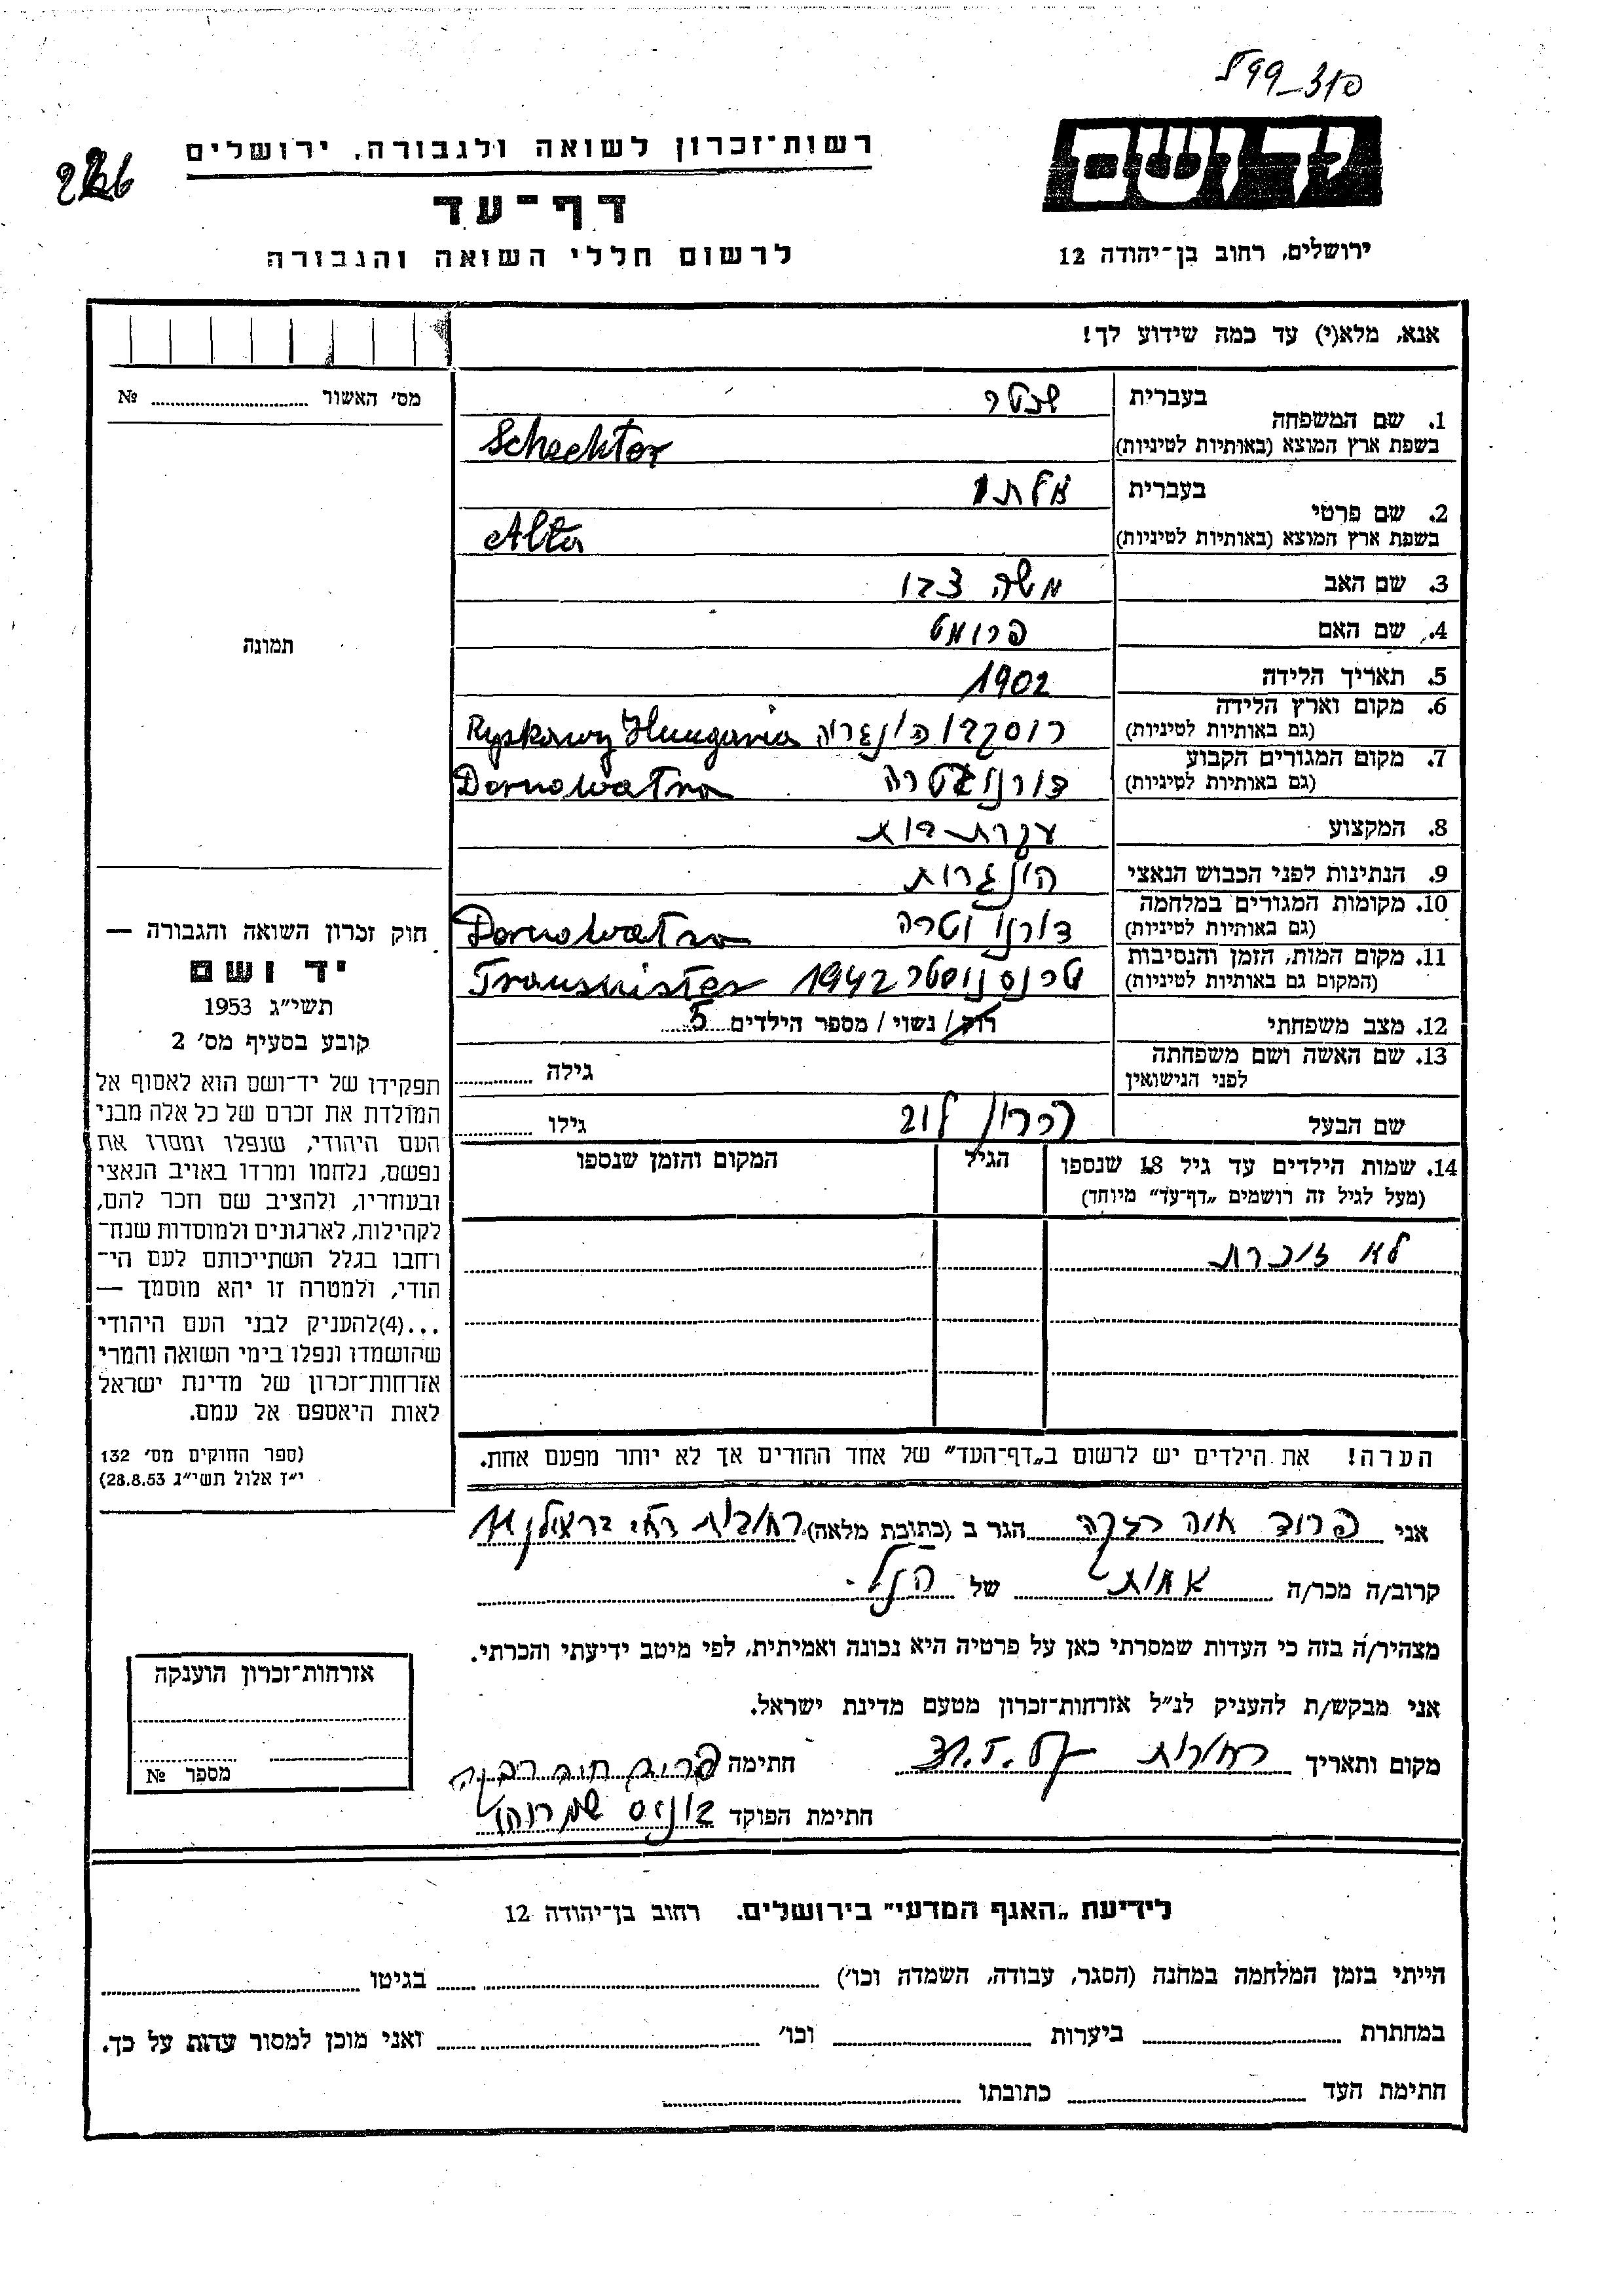 310_99ל
226
רשות־זכרון לשואה ולגבורה, ירושלים
יד ושם
דף־עד
לרשום חללי השואה והגבורה
ירושלים, רחוב בן־יהודה 12
אנא, מלא(י) עד כמה שידוע לך!
מס' האשור № 
תמונה
1. שם המשפחה
בעברית שכטר
בשפת ארץ המוצא (באותיות לטיניות) Schechter
2. שם פרטי
בעברית אלתה
בשפת ארץ המוצא (באותיות לטיניות) Alta
3. שם האב משה צבי
4. שם האם פרומט
5. תאריך הלידה 1902
6. מקום וארץ הלידה
(גם באותיות לטיניות) רוסקבי הונגריה Ryskawy Hungaria
7. מקום המגורים הקבוע
(גם באותיות לטיניות) דורנווטרה Dornowatra
8. המקצוע עקרת בית
9. הנתינות לפני הכבוש הנאצי הונגרית
10. מקומות המגורים במלחמה
(גם באותיות לטיניות) דורנו וטרה Dornowatra
11. מקום המות, הזמן והנסיבות
(המקום גם באותיות לטיניות) טרנסניסטר 1942 Transnister
12. מצב משפחתי רוק/ נשוי/ מספר הילדים 5
13. שם האשה ושם משפחתה
לפני הנישואין גילה
שם הבעל לוי גילו
14. שמות הילדים עד גיל 18 שנספו
(מעל לגיל זה רושמים „דף־עד" מיוחד)
הגיל
המקום והזמן שנספו
לא זוכרת
הערה! את הילדים יש לרשום ב„דף־העד" של אחד ההורים אך לא יותר מפעם אחת.
חוק זכרון השואה והגבורה —
יד ושם
תשי״ג 1953
קובע בסעיף מס' 2
תפקידו של יד־ושם הוא לאסוף אל
המולדת את זכרם של כל אלה מבני
העם היהודי, שנפלו ומסרו את
נפשם, נלחמו ומרדו באויב הנאצי
ובעוזריו, ולהציב שם וזכר להם,
לקהילות, לארגונים ולמוסדות שנח־
רחבו בגלל השתייכותם לעם הי־
הודי, ולמטרה זו יהא מוסמך —
...(4)להעניק לבני העם היהודי
שהושמדו ונפלו בימי השואה והמרי
אזרחות־זכרון של מדינת ישראל
לאות היאספם אל עמם.
(ספר החוקים מס' 132
י״ז אלול תשי״ג 28.8.53)
אני פרוד חוה רבקה הגר ב (כתובת מלאה) רחובות
קרוב/ה מכר/ה אחות של הנ״ל.
מצהיר/ה בזה כי העדות שמסרתי כאן על פרטיה היא נכונה ואמיתית, לפי מיטב ידיעתי והכרתי.
אני מבקש/ת להעניק לנ״ל אזרחות־זכרון מטעם מדינת ישראל.
מקום ותאריך רחובות חתימה פרוד חוה רבקה
חתימת הפוקד
אזרחות־זכרון הוענקה
מספר №
לידיעת „האגף המדעי" בירושלים. רחוב בן־יהודה 12
הייתי בזמן המלחמה במחנה (הסגר, עבודה, השמדה וכו') בגיטו
במחתרת ביערות וכו' ואני מוכן למסור עדות על כך.
חתימת העד כתובתו